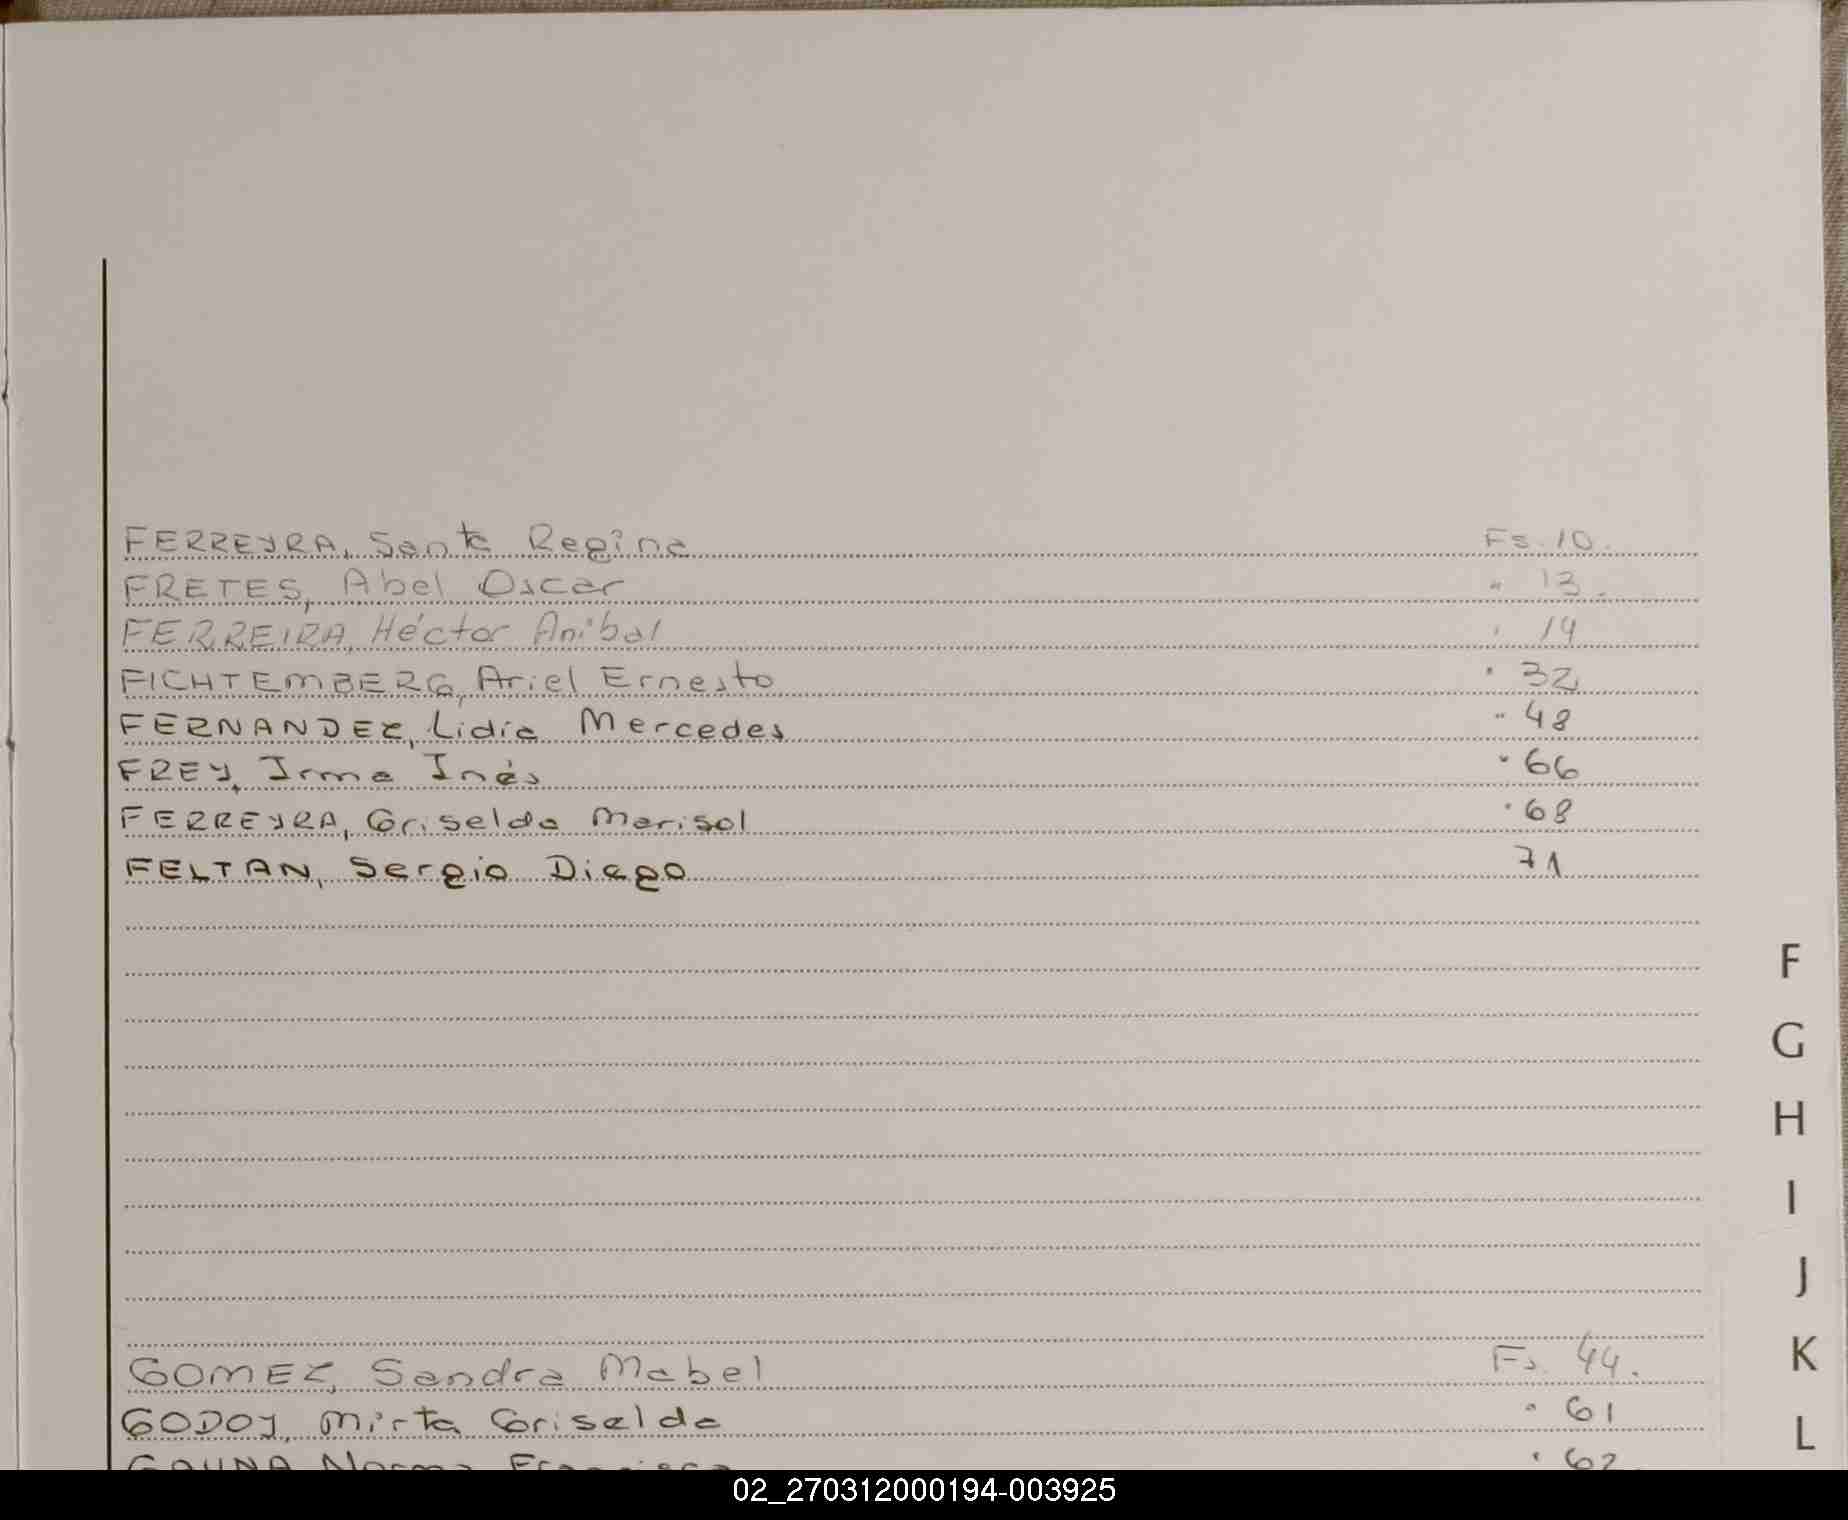 FERREYRA, Santa Regina Fs. 10.
FRETES, Abel Oscar " 13.
FERREIRA, Héctor Anibal " 14
FICHTEMBERG, Ariel Ernesto " 32
FERNANDEZ, Lidia Mercedes " 48
FREY, Irma Inés " 66
FERREYRA, Griselda Marisol " 68
FELTAN, Sergio Diego 71
F
G
H
I
J
K
L
GOMEZ, Sandra Mabel Fs. 44.
GODOY, Mirta Griselda " 61
GAUNA Norma Francisca " 62
02_270312000194-003925